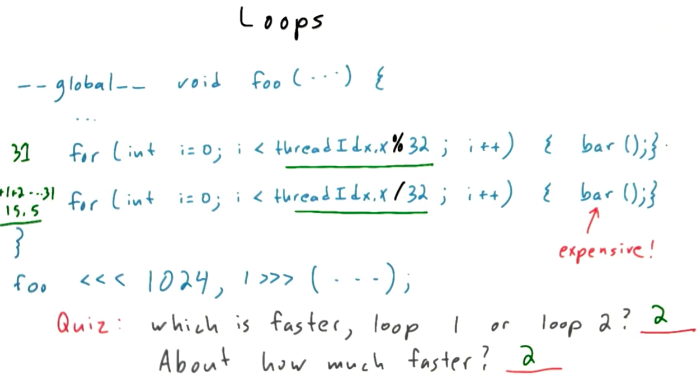 Loops
--global-- void foo (...) {
...
31 for (int i=0; i < threadIdx.x % 32 ; i++) { bar ();}
for (int i=0; i < threadIdx.x / 32 ; i++) { bar ();}
+1+2...31
15.5
}
expensive!
foo <<< 1024, 1 >>> (...);
Quiz: which is faster, loop 1 or loop 2? 2
About how much faster? 2